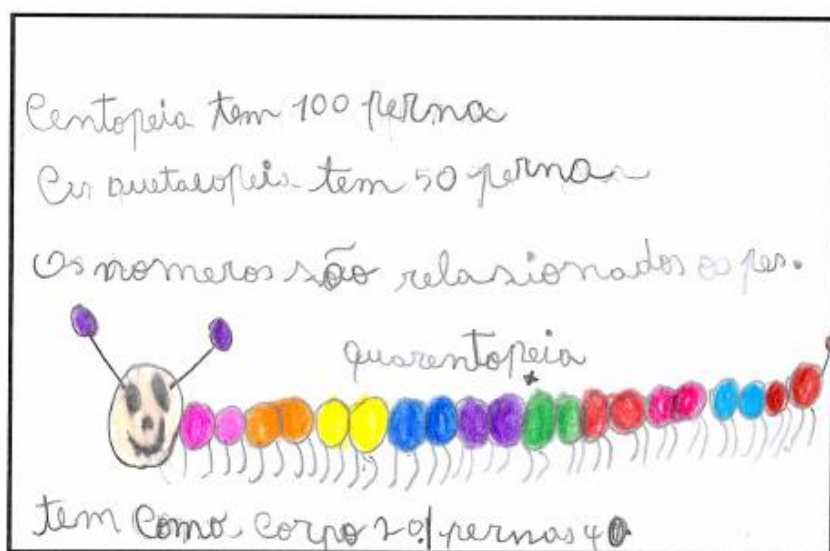 Centopeia tem 100 perna
tem 50 pernas
Os nomeros são relasionados os pes.
quarentopeia
tem como corpo 20 pernas 40